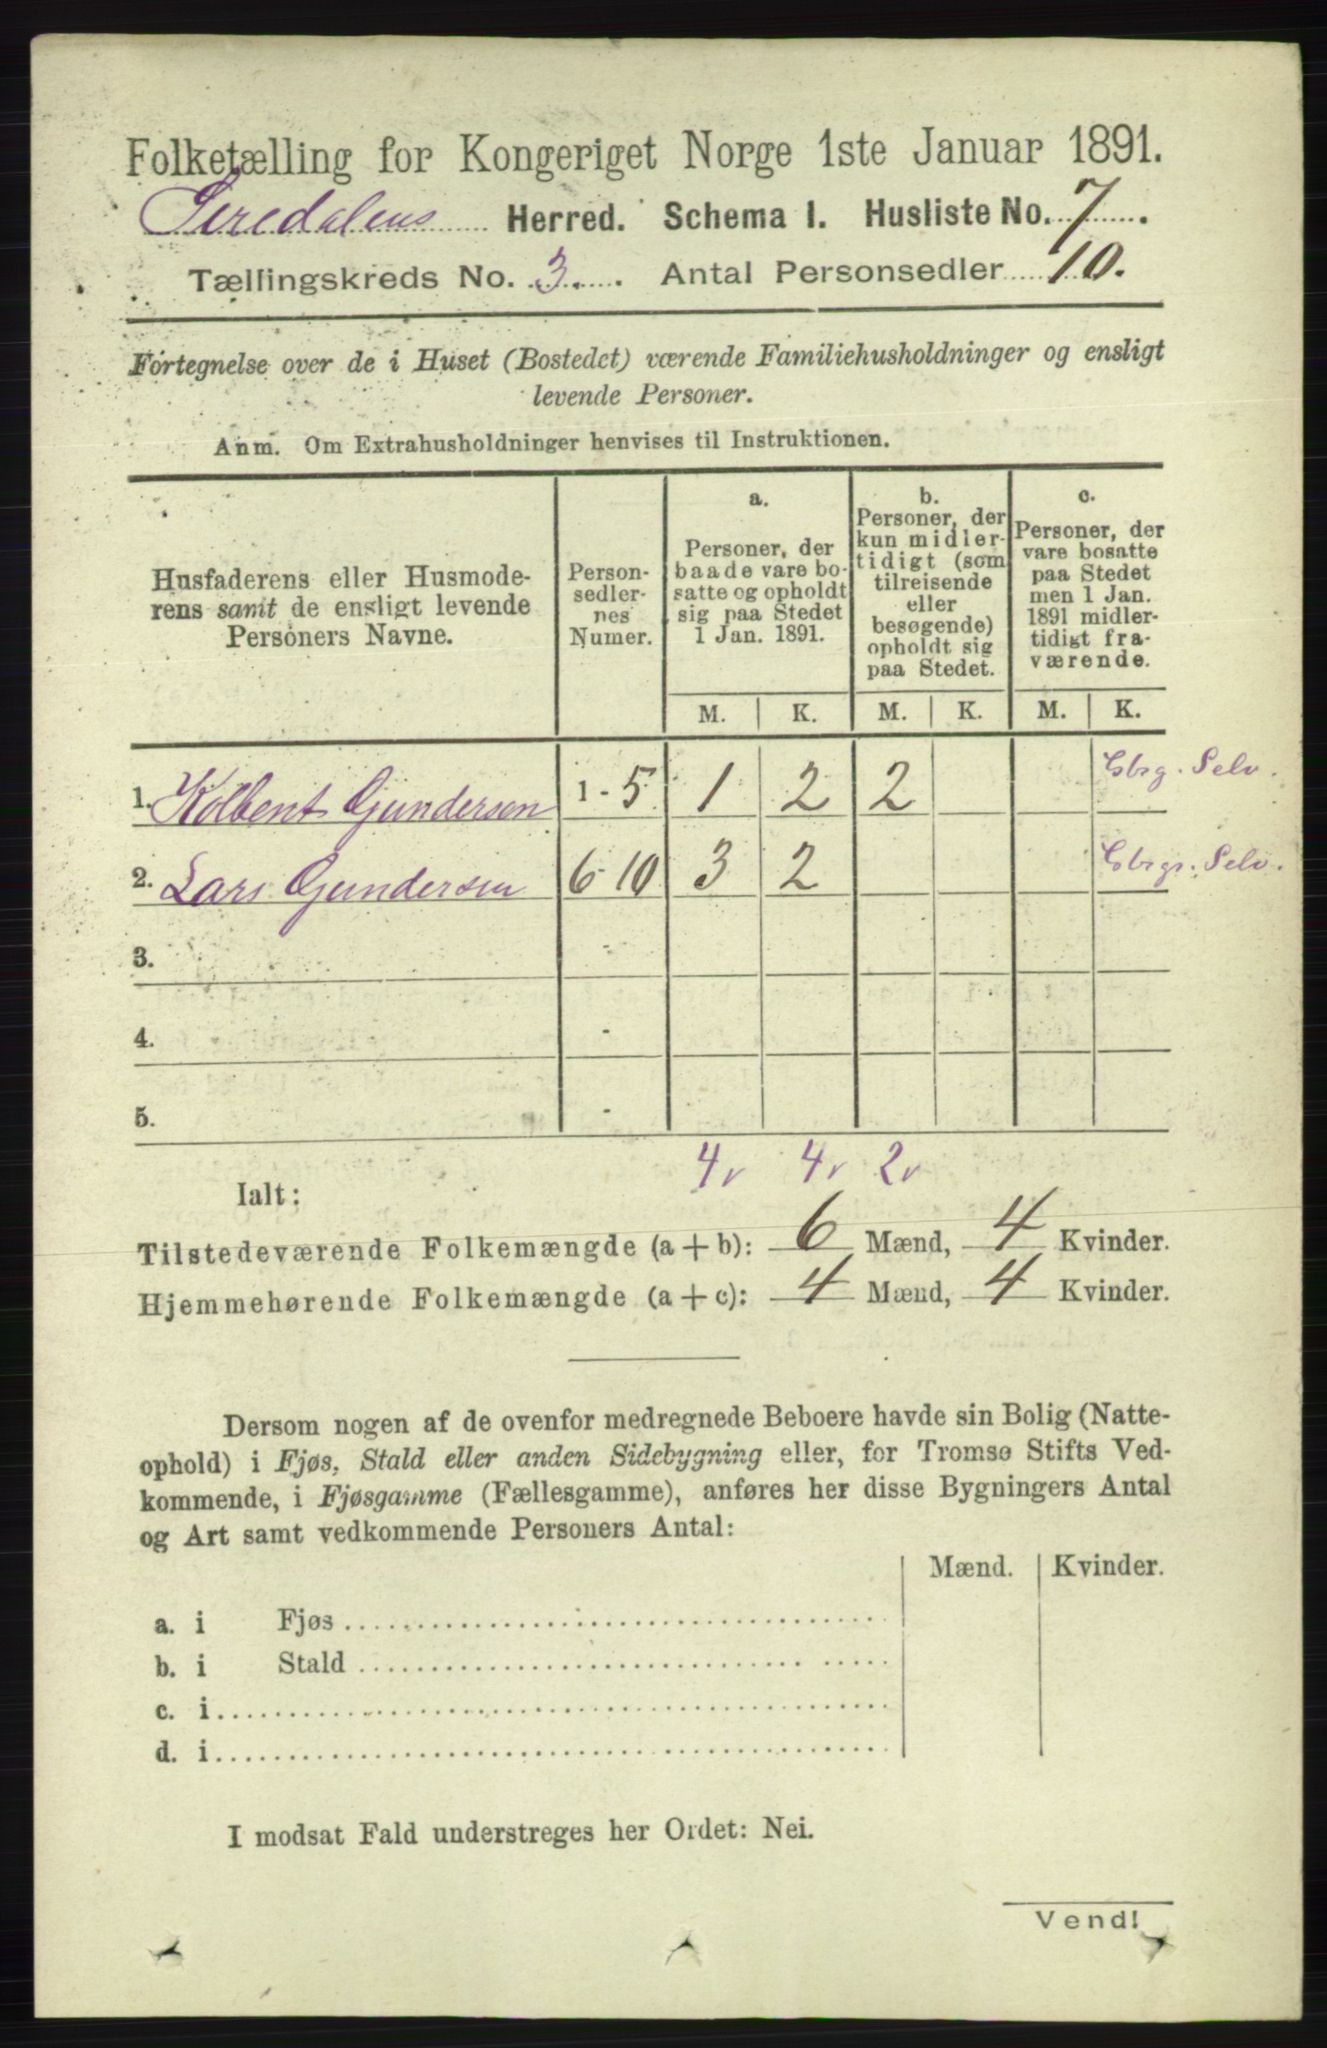 Folketælling for Kongeriget Norge 1ste Januar 1891.
Siredalens Herred. Schema I. Husliste No. 7.
Tællingskreds No. 3. Antal Personsedler 10.
Fortegnelse over de i Huset (Bostedet) værende Familiehusholdninger og ensligt
levende Personer.
Anm. Om Extrahusholdninger henvises til Instruktionen.
Husfaderens eller Husmode-
rens samt de ensligt levende
Personers Navne.
Person-
sedler-
nes
Numer.
a.
Personer, der
baade vare bo-
satte og opholdt
sig paa Stedet
1 Jan. 1891.
b.
Personer, der
kun midler-
tidigt (som
tilreisende
eller
besøgende)
opholdt sig
paa Stedet.
c.
Personer, der
vare bosatte
paa Stedet
men 1 Jan.
1891 midler-
tidigt fra-
værende.
M. K. M. K. M. K.
1. Kolbent Gundersen 1-5 1 2 2 Gbrg. Selv.
2. Lars Gundersen 6-10 3 2 Gbrgr. Selv.
3. -
4. -
5. -
4v 4v 2v
Ialt:
Tilstedeværende Folkemængde (a + b): 6 Mænd, 4 Kvinder.
Hjemmehørende Folkemængde (a + c): 4 Mænd, 4 Kvinder.
Dersom nogen af de ovenfor medregnede Beboere havde sin Bolig (Natte-
ophold) i Fjøs, Stald eller anden Sidebygning eller, for Tromsø Stifts Ved-
kommende, i Fjøsgamme (Fællesgamme), anføres her disse Bygningers Antal
og Art samt vedkommende Personers Antal:
Mænd. Kvinder.
a. i Fjøs
b. i Stald
c. i
d. i
I modsat Fald understreges her Ordet: Nei.
Vend!